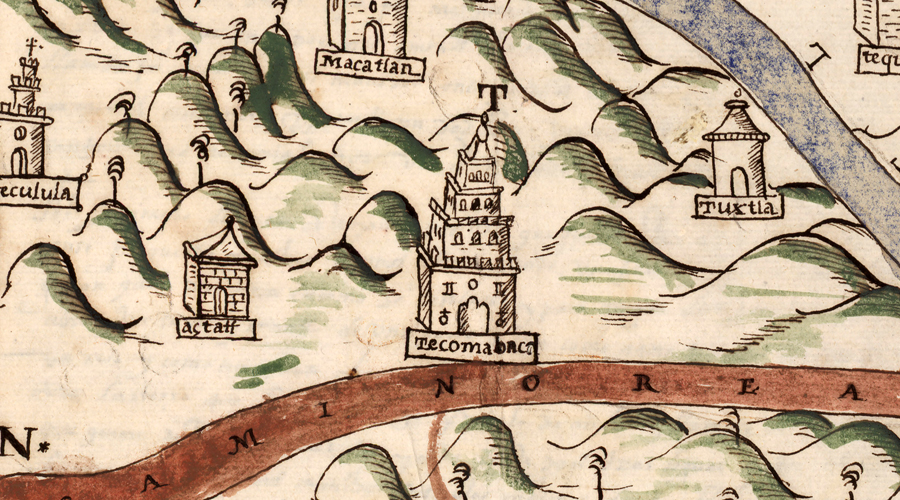 Macatlan
tequ
T
T
eculula
Tuxtla
açtatl
Tecomabaca
N*
A M I N O R E A